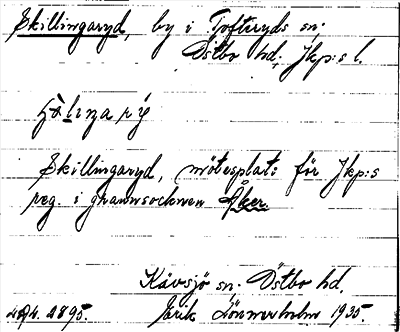 Skillingaryd, by i Tofteryds sn;
Östbo hd, Jkp:s l.
Skillingaryd, mötesplats för Jkp:s
reg. i grannsocknen Åker.
Kävsjö sn. Östbo hd.
1895. Erik Lönnerholm 1935.